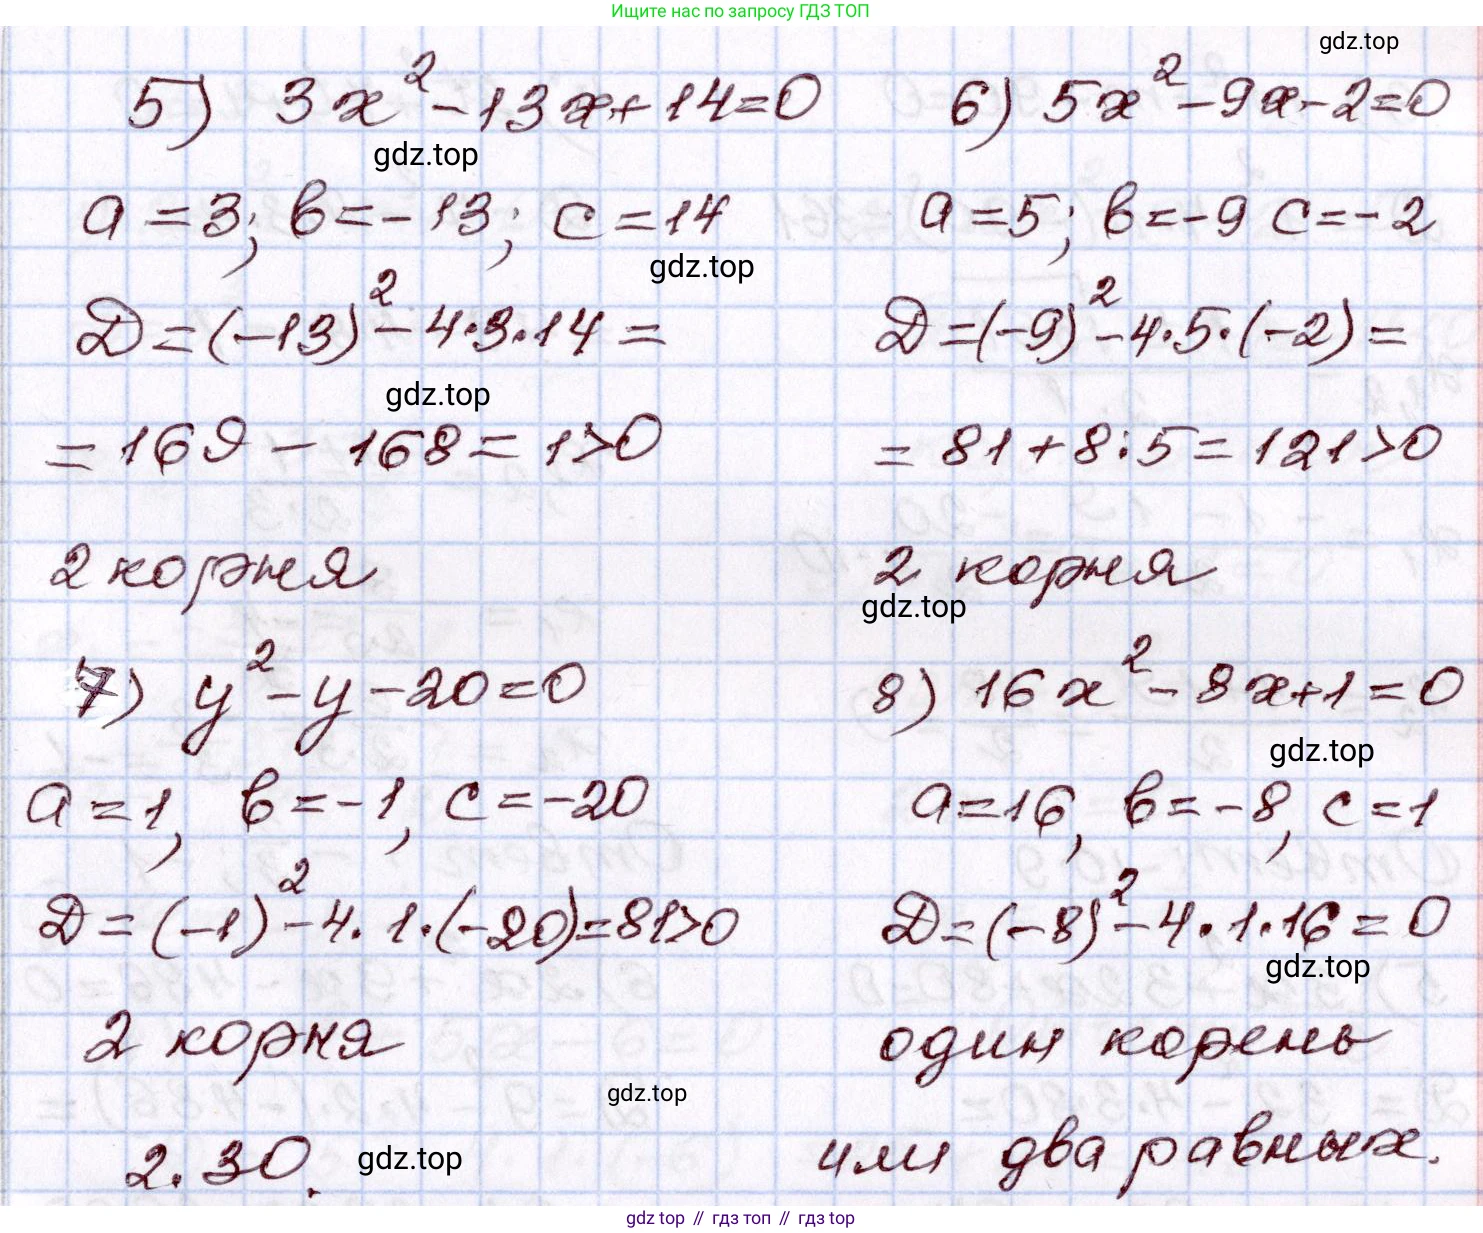 Ищите нас по запросу ГДЗ ТОП
gdz.top
5) 3x²-13x+14=0
6) 5x²-9x-2=0
gdz.top
a=3; в=-13; c=14
a=5; в=-9 c=-2
gdz.top
Д=(-13)²-4·3·14=
Д=(-9)²-4·5·(-2)=
gdz.top
=169-168=1>0
=81+8:5=121>0
2 корня
2 корня
gdz.top
7) y²-y-20=0
8) 16x²-8x+1=0
gdz.top
a=1, в=-1, c=-20
a=16, в=-8, c=1
Д=(-1)²-4·1·(-20)=81>0
Д=(-8)²-4·1·16=0
gdz.top
2 корня
один корень
gdz.top
или два равных.
2.30.
gdz.top
gdz top // гдз топ // gdz top